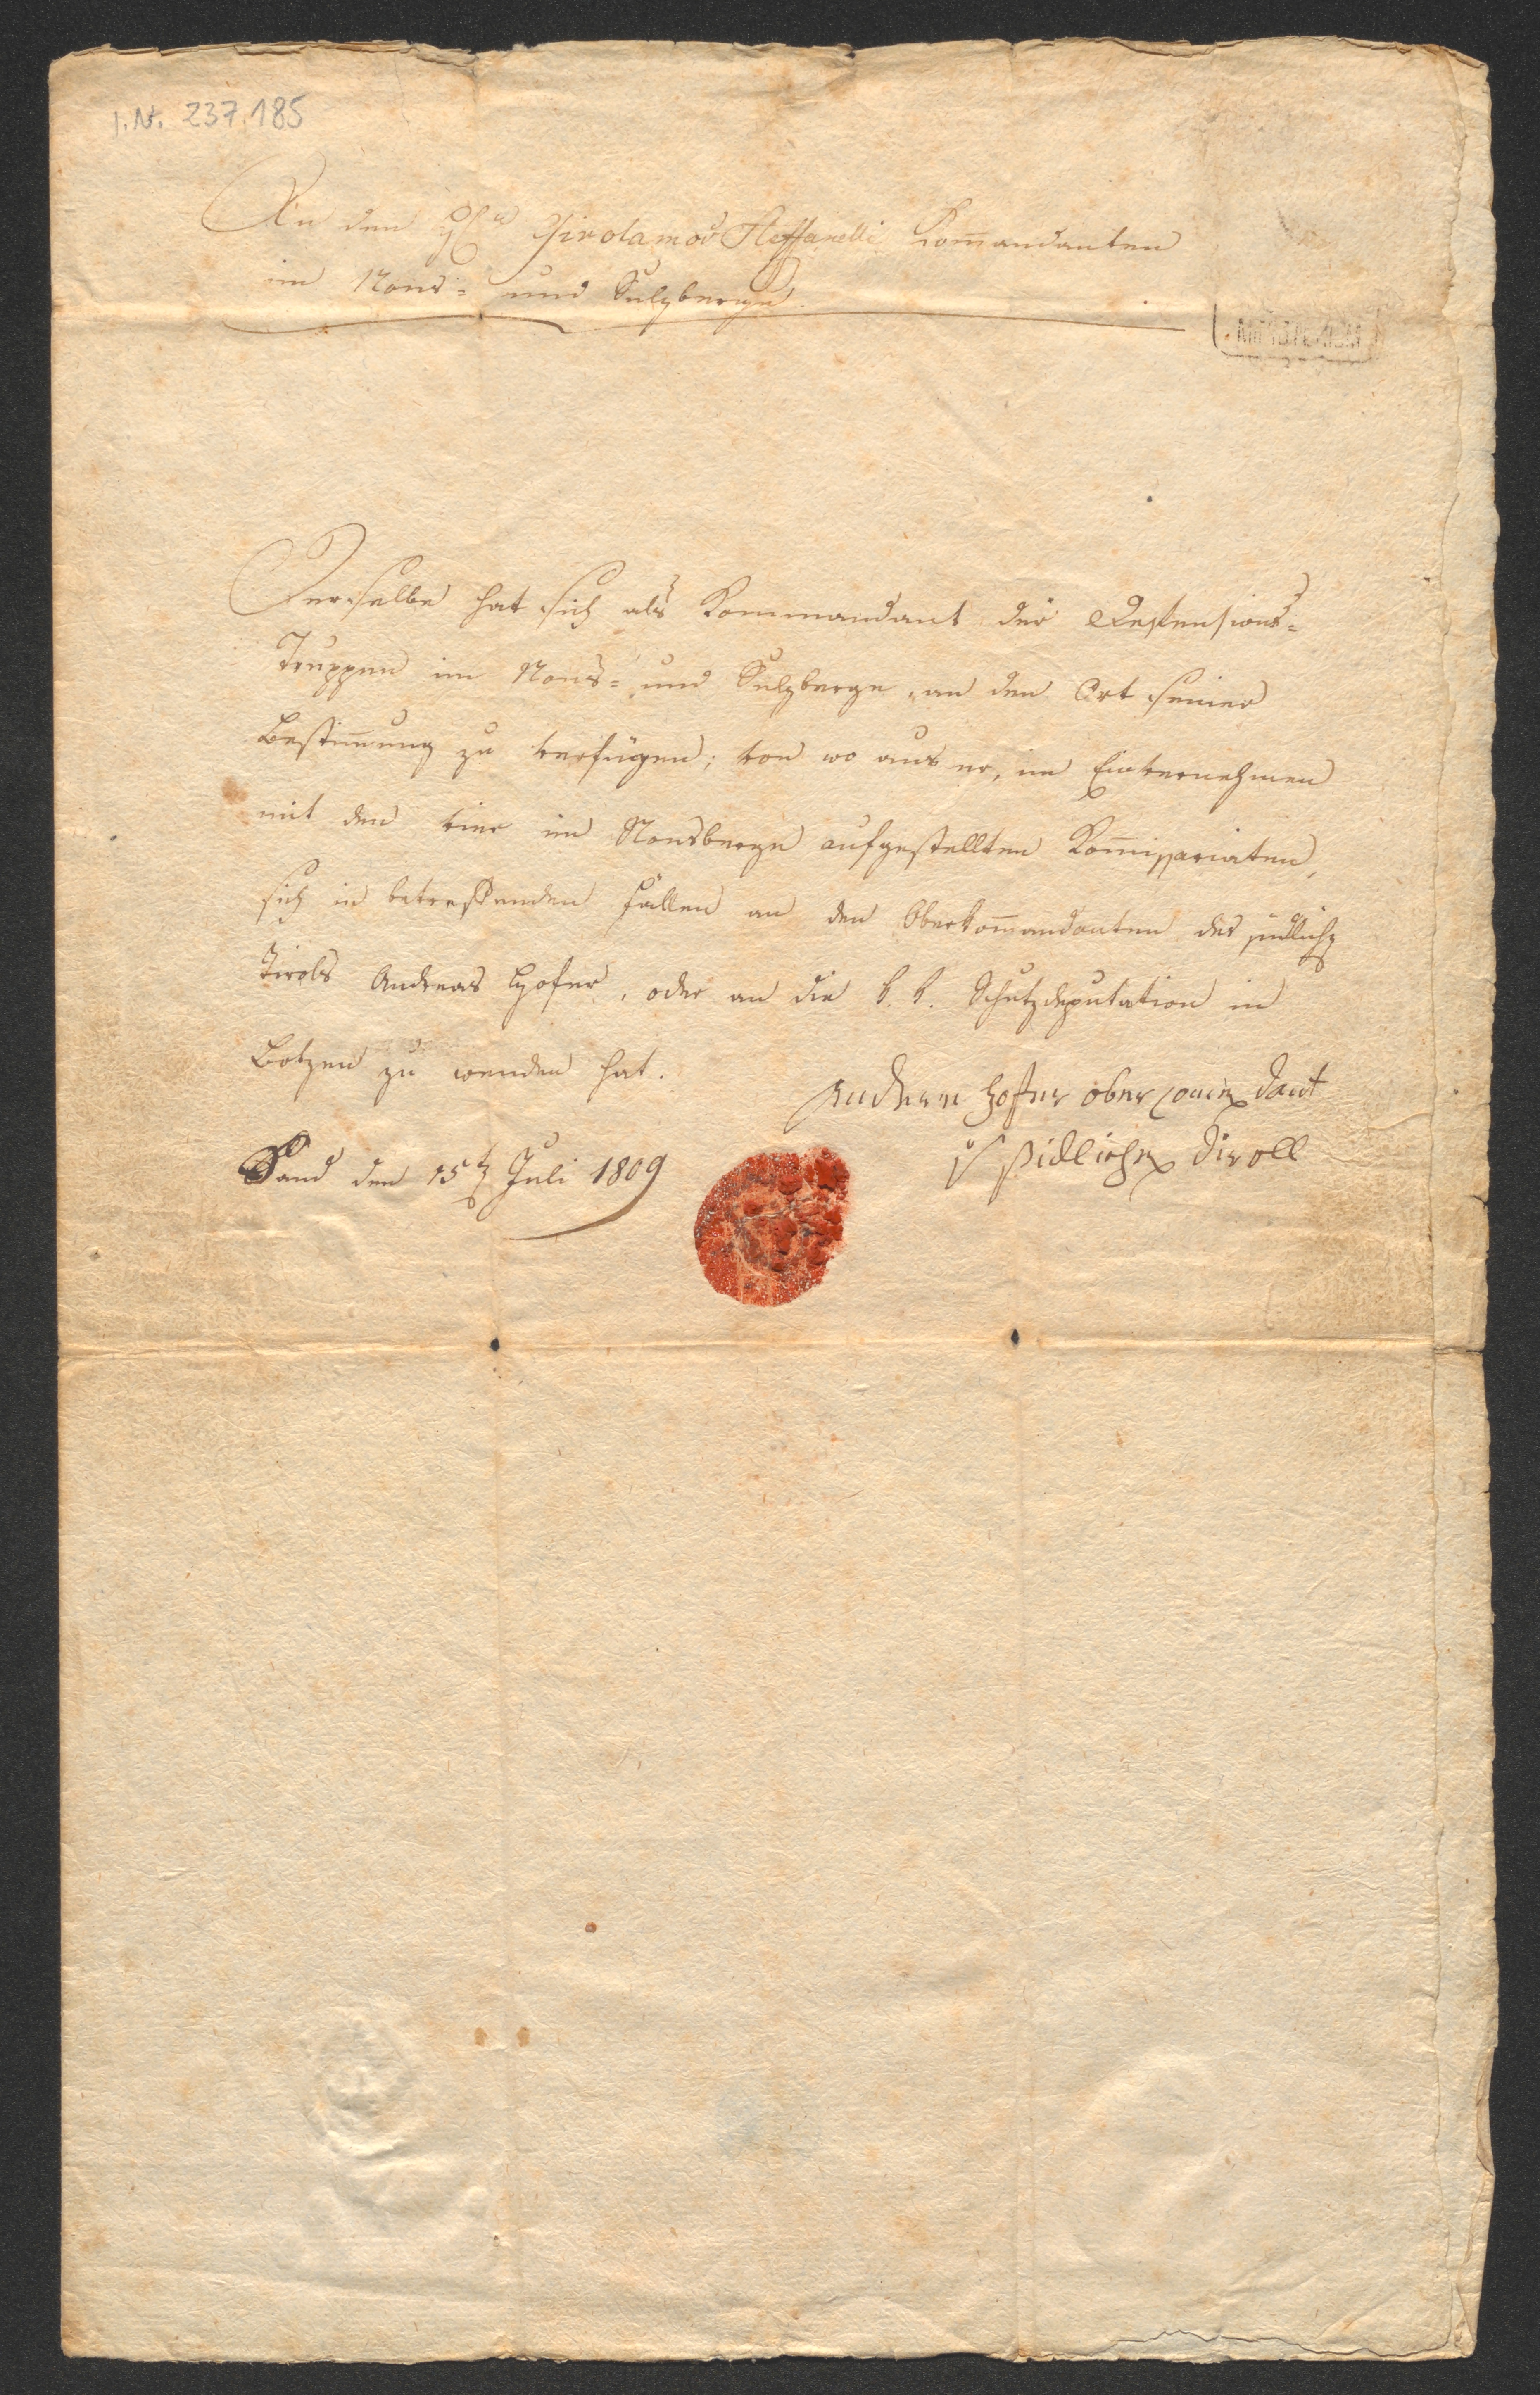 I.N. 237.185
An den H̃en Girolamo Steffanelli Kom̅andanten
im Nons- und Sulzberge
Derselbe hat sich als Kommandant der Defensions-
Truppen im Nons- und Sulzberge, an den Ort seiner
Bestim̅ung zu verfügen; von wo aus er, im Einvernehmen
mit den vier im Nonsberge aufgestellten Kom̅issariaten,
sich in betreffenden Fällen an den Oberkom̅andanten des südlichen
Tirols Andreas Hofer, oder an die k. k. Schutzdeputation in
Botzen zu wenden hat.
Andere Hofer ober Comen dant
sidlichen Diroll
Sand den 15t Juli 1809